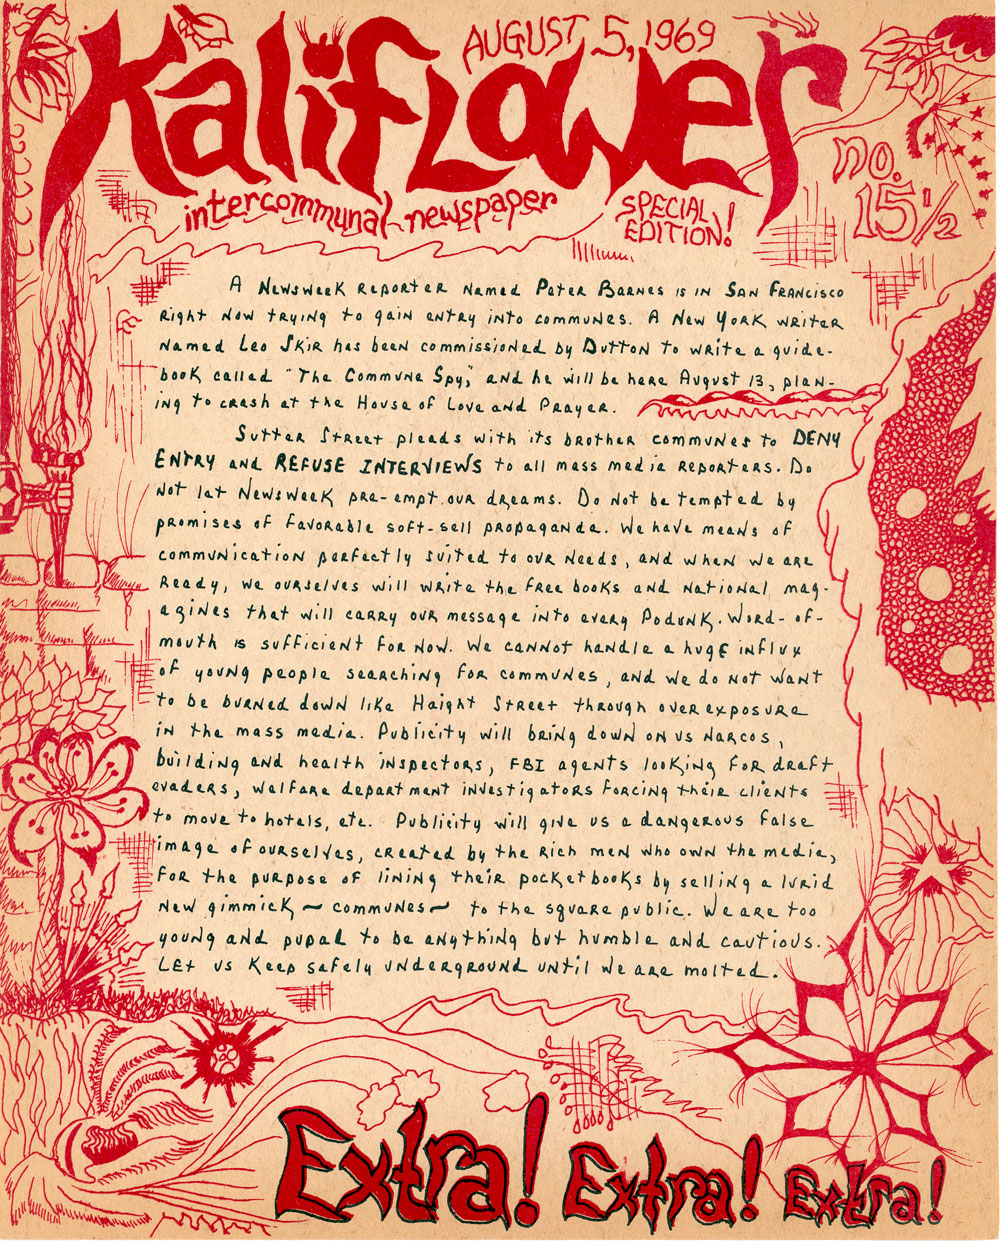 AUGUST 5, 1969
Kaliflower
intercommunal newspaper
SPECIAL
EDITION!
no.
15 1/2
A Newsweek reporter named Peter Barnes is in San Francisco
right now trying to gain entry into communes. A New York writer
named Leo Skir has been commissioned by Dutton to write a guide-
book called "The Commune Spy," and he will be here August 13, plan-
ing to crash at the House of Love and Prayer.
Sutter Street pleads with its brother communes to DENY
ENTRY and REFUSE INTERVIEWS to all mass media reporters. Do
not let Newsweek pre-empt our dreams. Do not be tempted by
promises of favorable soft-sell propaganda. We have means of
communication perfectly suited to our needs, and when we are
ready, we ourselves will write the free books and national mag-
azines that will carry our message into every Podunk. Word-of-
mouth is sufficient for now. We cannot handle a huge influx
of young people searching for communes, and we do not want
to be burned down like Haight Street through over exposure
in the mass media. Publicity will bring down on us narcos,
building and health inspectors, FBI agents looking for draft
evaders, welfare department investigators forcing their clients
to move to hotels, etc. Publicity will give us a dangerous false
image of ourselves, created by the rich men who own the media,
for the purpose of lining their pocketbooks by selling a lurid
new gimmick ~ communes ~ to the square public. We are too
young and pupal to be anything but humble and cautious.
Let us keep safely underground until we are molted.
Extra! Extra! Extra!